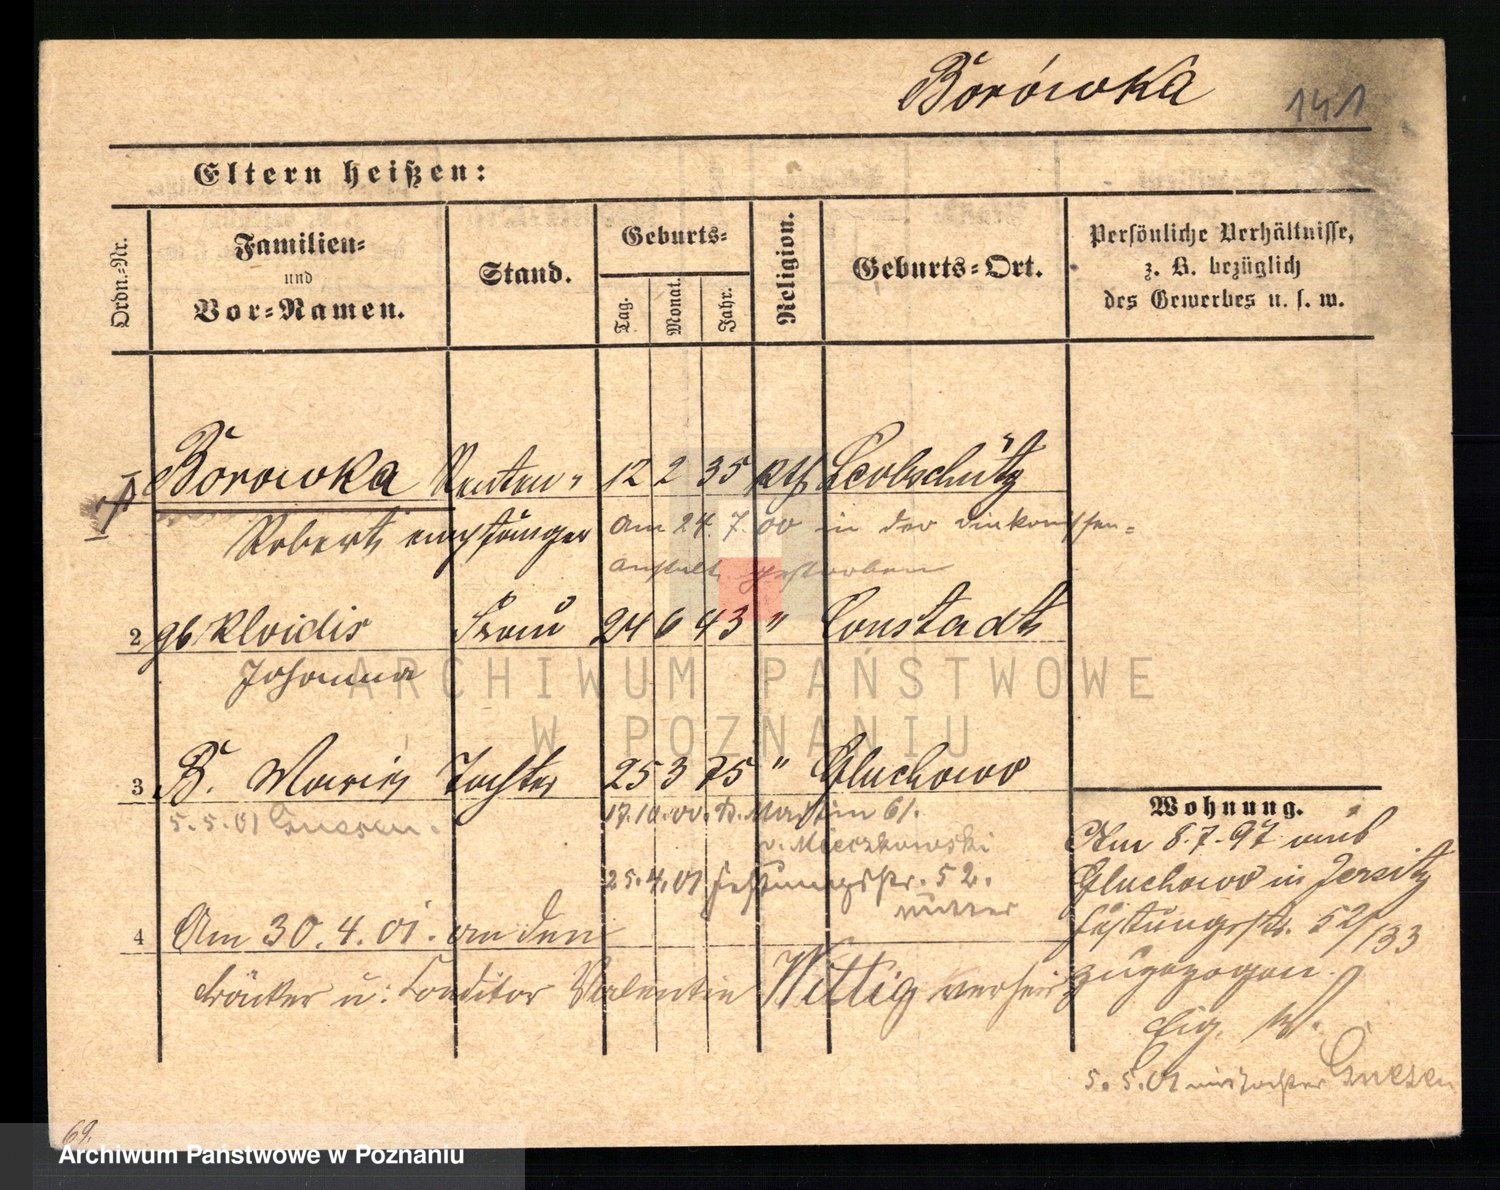 Borówka 141
Eltern heißen:
Ordn.-Nr.
Familien-
und
Vor-Namen.
Stand.
Geburts-
Tag.
Monat.
Jahr.
Religion.
Geburts-Ort.
Persönliche Verhältnisse,
z. B. bezüglich
des Gewerbes u. s. w.
Borowka Renten- 12 2 35 kth Leobschütz
Robert empfänger am 24. 7. 00 in der
anstalt gestorben
2 gb. Kloidis Frau 24 6 43 " Constadt
Johanna
ARCHIWUM PAŃSTWOWE
W POZNANIU
3 B. Marie Tochter 25 3 75 " Gluchowo
5.5.01 Gnesen. 17.10.00. St. Martin 61.
v. Mieczkowski
25.4.01 Festungsstr. 52.
Mutter
4 Am 30.4.01. an den
Bäcker u: Conditor Valentin Wittig verheir
Wohnung.
Am 8.7.97 aus
Gluchowo in Jersitz
Festungsstr. 52/133
zugezogen.
Eig. W.
5.5.01 Tochter Gnesen
69.
Archiwum Państwowe w Poznaniu